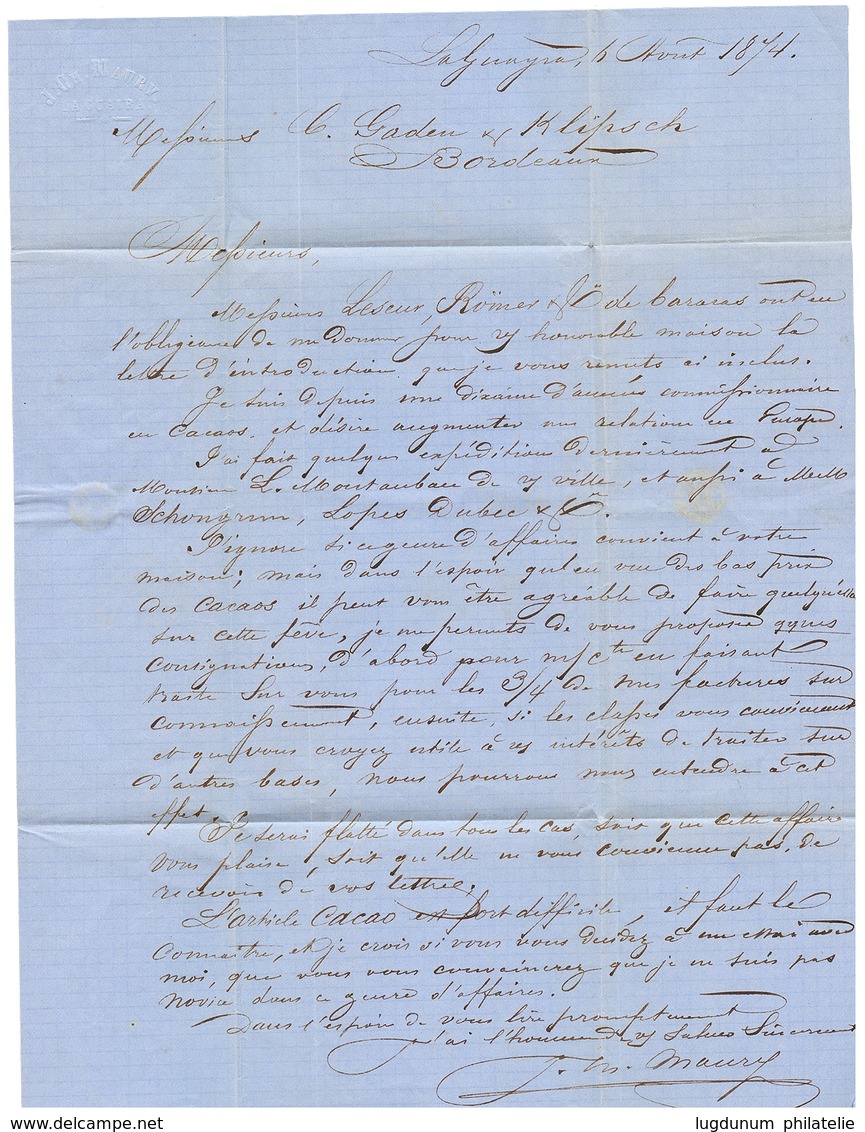 J. Ch. MAURY
LA GUAIRA
LaGuayra, 6 Août 1874.
Messieurs C. Gaden & Klipsch
Bordeaux
Messieurs,
Messieurs Leseur, Römer & Co de Caracas ont eu
l'obligeance de me donner pour vv honorable maison la
lettre d'introduction que je vous remets ci inclus.
Je suis depuis une dizaine d'années commissionnaire
en cacaos, et désire augmenter mes relations en Europe.
J'ai fait quelques expéditions dernièrement à
Monsieur L. Montauban de vv ville, et aussi à MM
Schongrun, Lopes Dubec & Co.
J'ignore si ce genre d'affaires convient à votre
maison; mais dans l'espoir qu'en vue des bas prix
des cacaos il peut vous être agréable de faire quelqu'essai
sur cette fève, je me permets de vous proposer qques
consignations, d'abord pour m/cte en faisant
traite sur vous pour les 3/4 de mes factures sur
connaissement, ensuite, si les vous conviennent
et que vous croyez utile à vv intérêts de traiter sur
d'autres bases, nous pourrons nous entendre à cet
effet.
Je serai flatté dans tous les cas, soit que cette affaire
vous plaise, soit qu'elle ne vous convienne pas, de
recevoir de vos lettres.
L'article Cacao est fort difficile, et faut le
connaître, et je crois si vous vous decidez à un essai avec
moi, que vous vous convaincrez que je ne suis pas
novice dans ce genre d'affaires.
Dans l'espoir de vous lire promptement
j'ai l'honneur de vv saluer sincerement
J. Ch. Maury
lugdunum philatelie